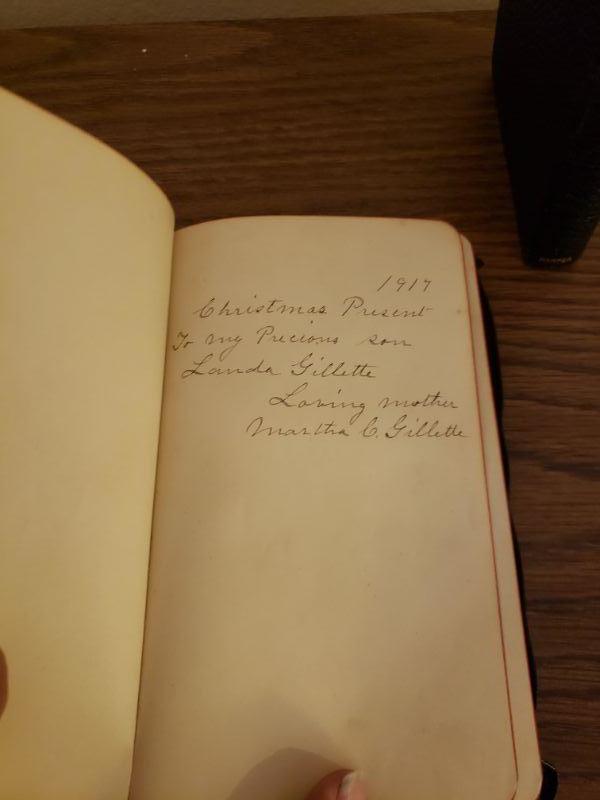 1917
Christmas Present
To my Precious son
Landa Gillette
Loving mother
Martha C. Gillette